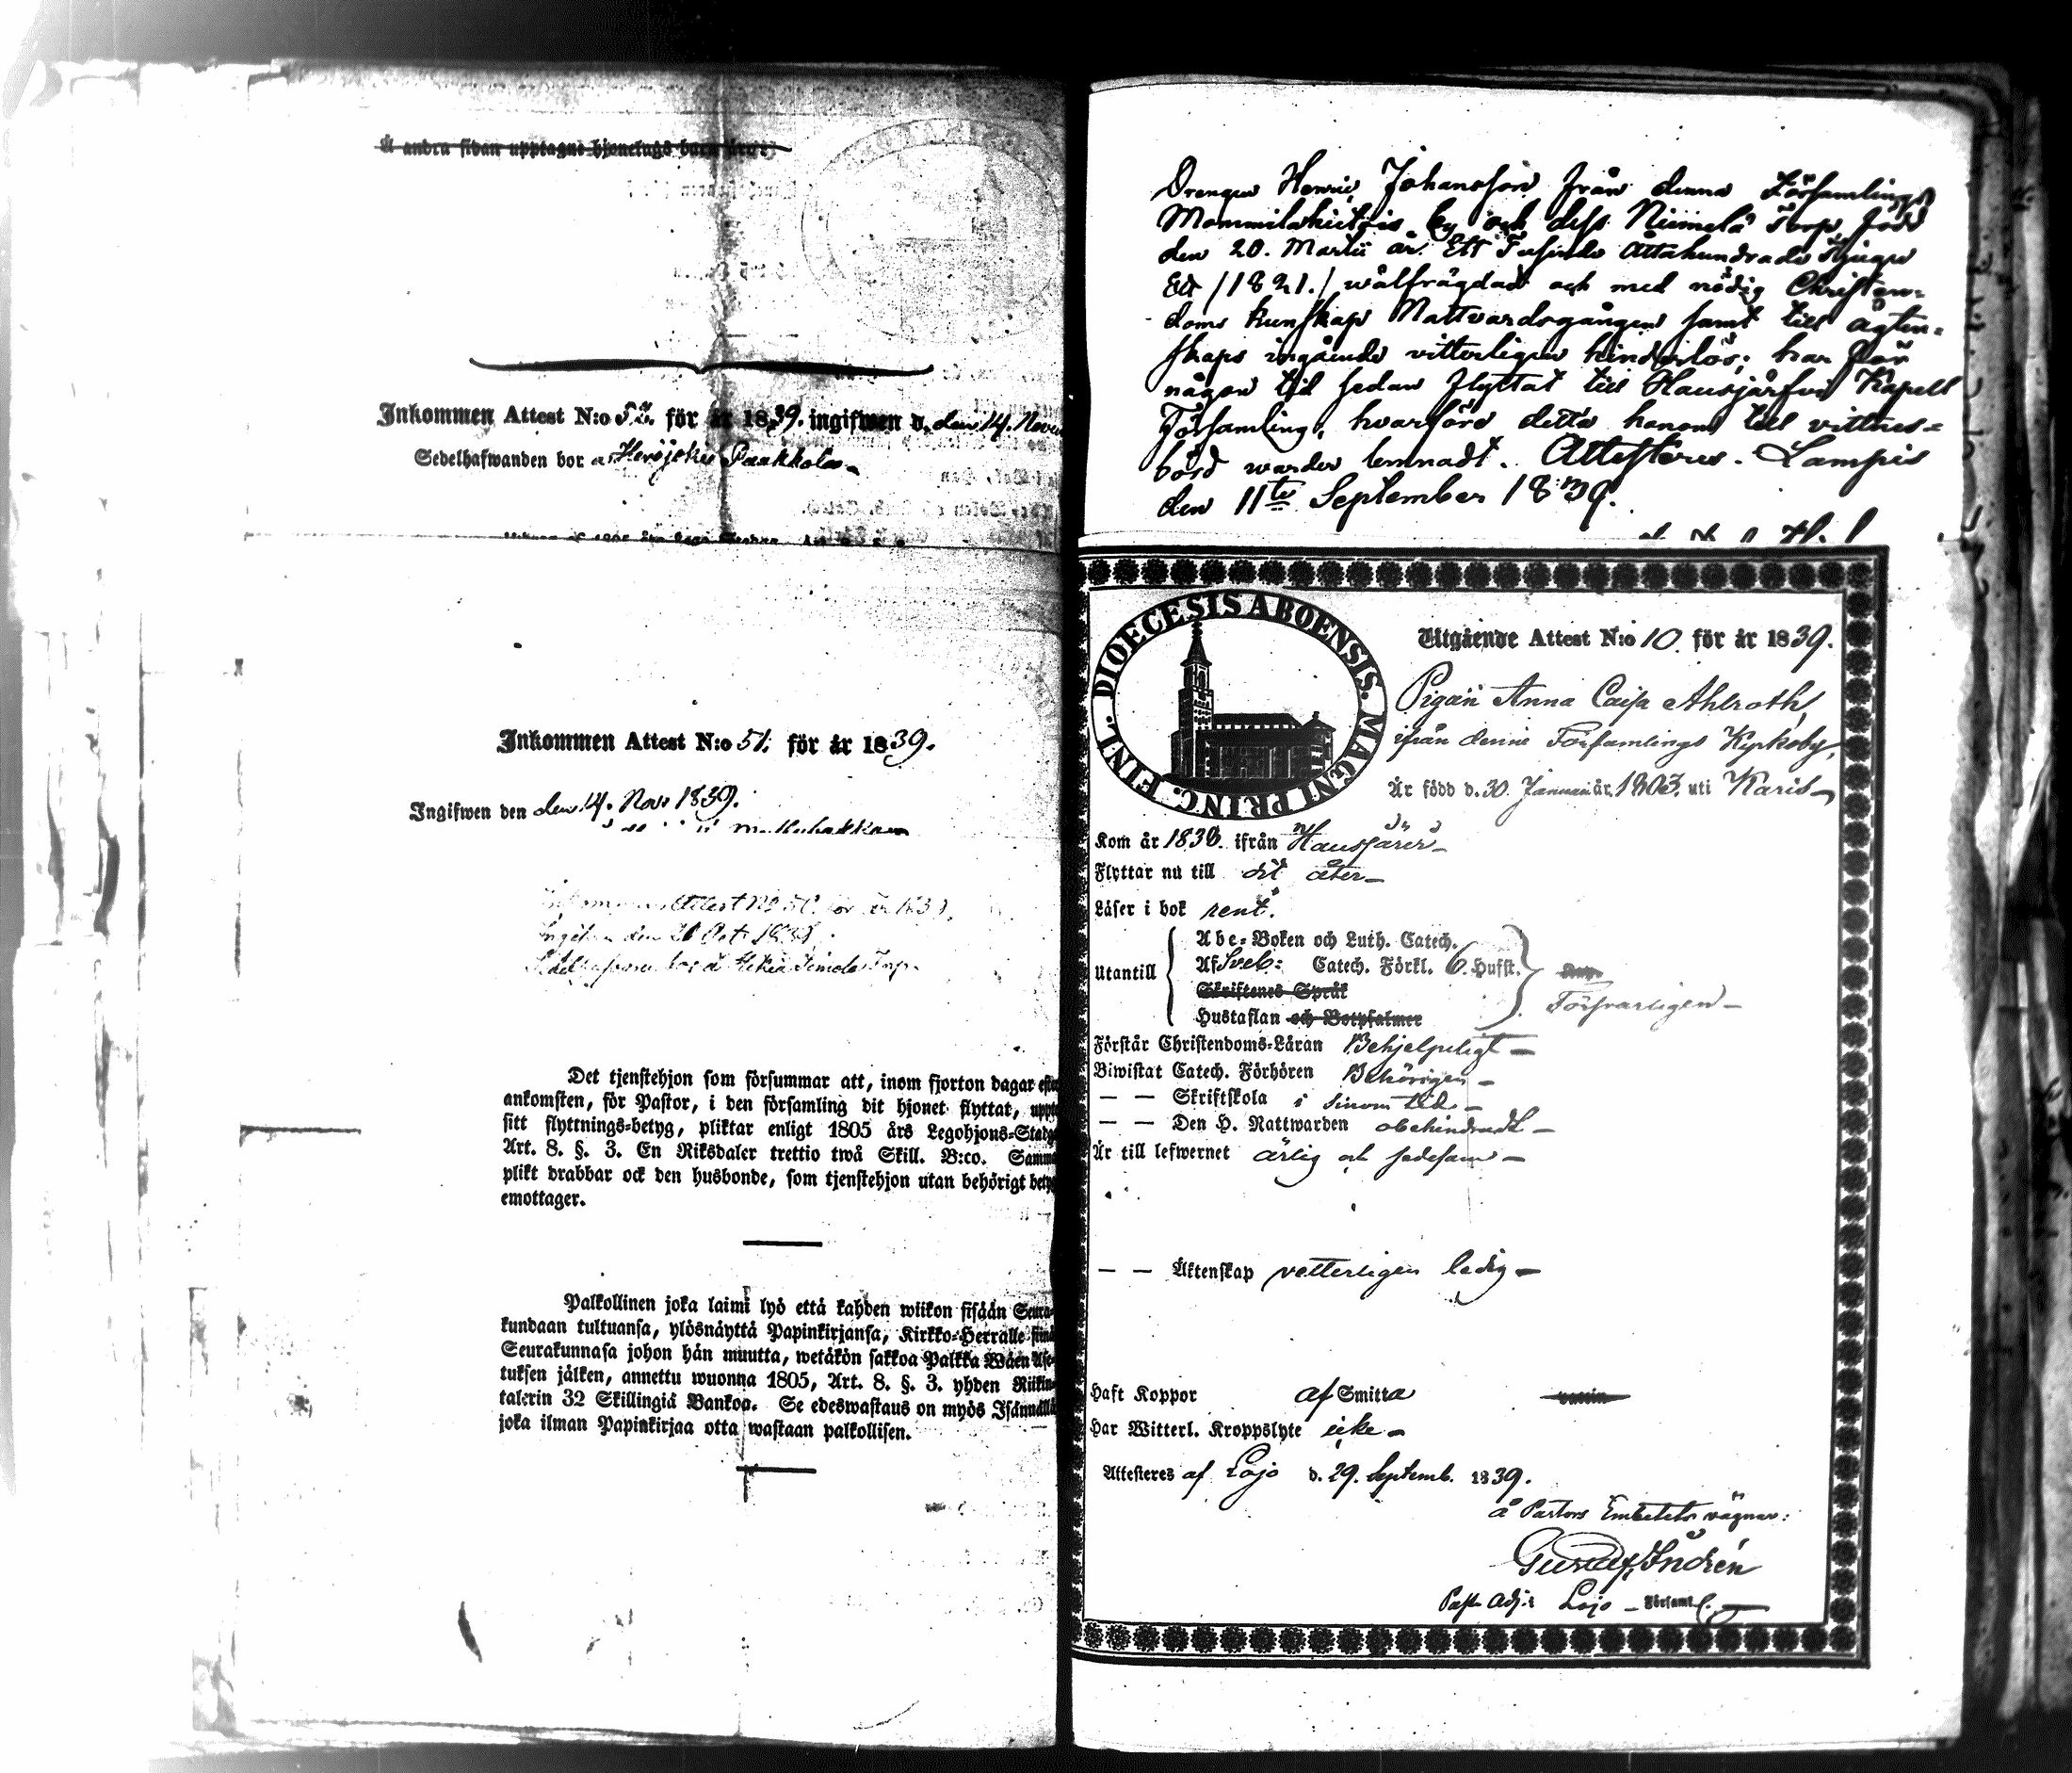 Å andra sidan upptagne hjonelags barn äro:
Inkommen Attest N:o 52. för år 1839. ingifwen d. den 14. Novem
Sedelhafwanden bor å Herajoki Paakkola
Inkommen Attest N:o 51. för år 1839.
Ingifwen den den 14. Nov: 1839.
Inkommen Attest No 50. för år 1839.
Ingifven den 20 Oct. 1839.
Sedelhafvaren bor å
Det tjenstehjon som försummar att, inom fjorton dagar efter
ankomsten, för Pastor, i den församling dit hjonet flyttat, uppte
sitt flyttnings-betyg, pliktar enligt 1805 års Legohjons-Stadga
Art. 8. §. 3. En Riksdaler trettio twå Skill. B:co. Samma
plikt drabbar ock den husbonde, som tjenstehjon utan behörigt betyg
emottager.
Palkollinen joka laimi lyö että kahden wiikon sisään Seura-
kundaan tultuansa, ylösnäyttä Papinkirjansa, Kirkko-Herralle siinä
Seurakunnasa johon hän muutta, wetäkön sakkoa Palkka Wäen Ase-
tuksen jälken, annettu wuonna 1805, Art. 8. §. 3. yhden Riikin-
talerin 32 Skillingiä Bankoa. Se edeswastaus on myös Isännällä
joka ilman Papinkirjaa otta wastaan palkollisen.
Drengen Henric Johansson från denna Församlings
Mommilahietois by och dess Niimelä torp, född
den 20. Martii år Ett Tusende Åttahundrade tjugu
Ett /1821./ wälfrägdad och med nödig Christen-
doms kunskap Nattvardsgången samt till ägten-
skaps ingående vitterligen hinderlös; har för
någon tid sedan flyttat till Hausjärfvi Kapell
Församling, hvarföre detta honom till vittnes-
börd warder lemnadt. Attesteres. Lampis
den 11te September 1839.
DIOECESIS ABOENSIS. MAGNI PRINC. FINL.
Utgående Attest N:o 10. för år 1839.
Pigan Anna Caisa Ahlroth,
ifrån denne Församlings Kyrkoby,
Är född d. 30. Januari år 1803. uti Karis
Kom år 1836. ifrån Hausjärvi
Flyttar nu till dit åter
Läser i bok rent.
Utantill
Abc-Boken och Luth. Catech.
Af Sveb: Catech. Förkl. 6. Hufst.
Skriftenes Språk
Hustaflan och Botpsalmer
Försvarligen
Förstår Christendoms-Läran Behjelpeligt
Biwistat Catech. Förhören Behörigen
— — Skriftskola i sinom tid
— — Den H. Nattwarden obehindradt
Är till lefwernet ärlig och sedesam
— — Äktenskap vetterligen ledig
Haft Koppor af Smitta
Har Witterl. Kroppslyte icke
Attesteres af Lojo d. 29. Septemb. 1839.
å Pastors Embetets vägnar:
Gustaf Indrén
Past. Adj: i Lojo Församl.